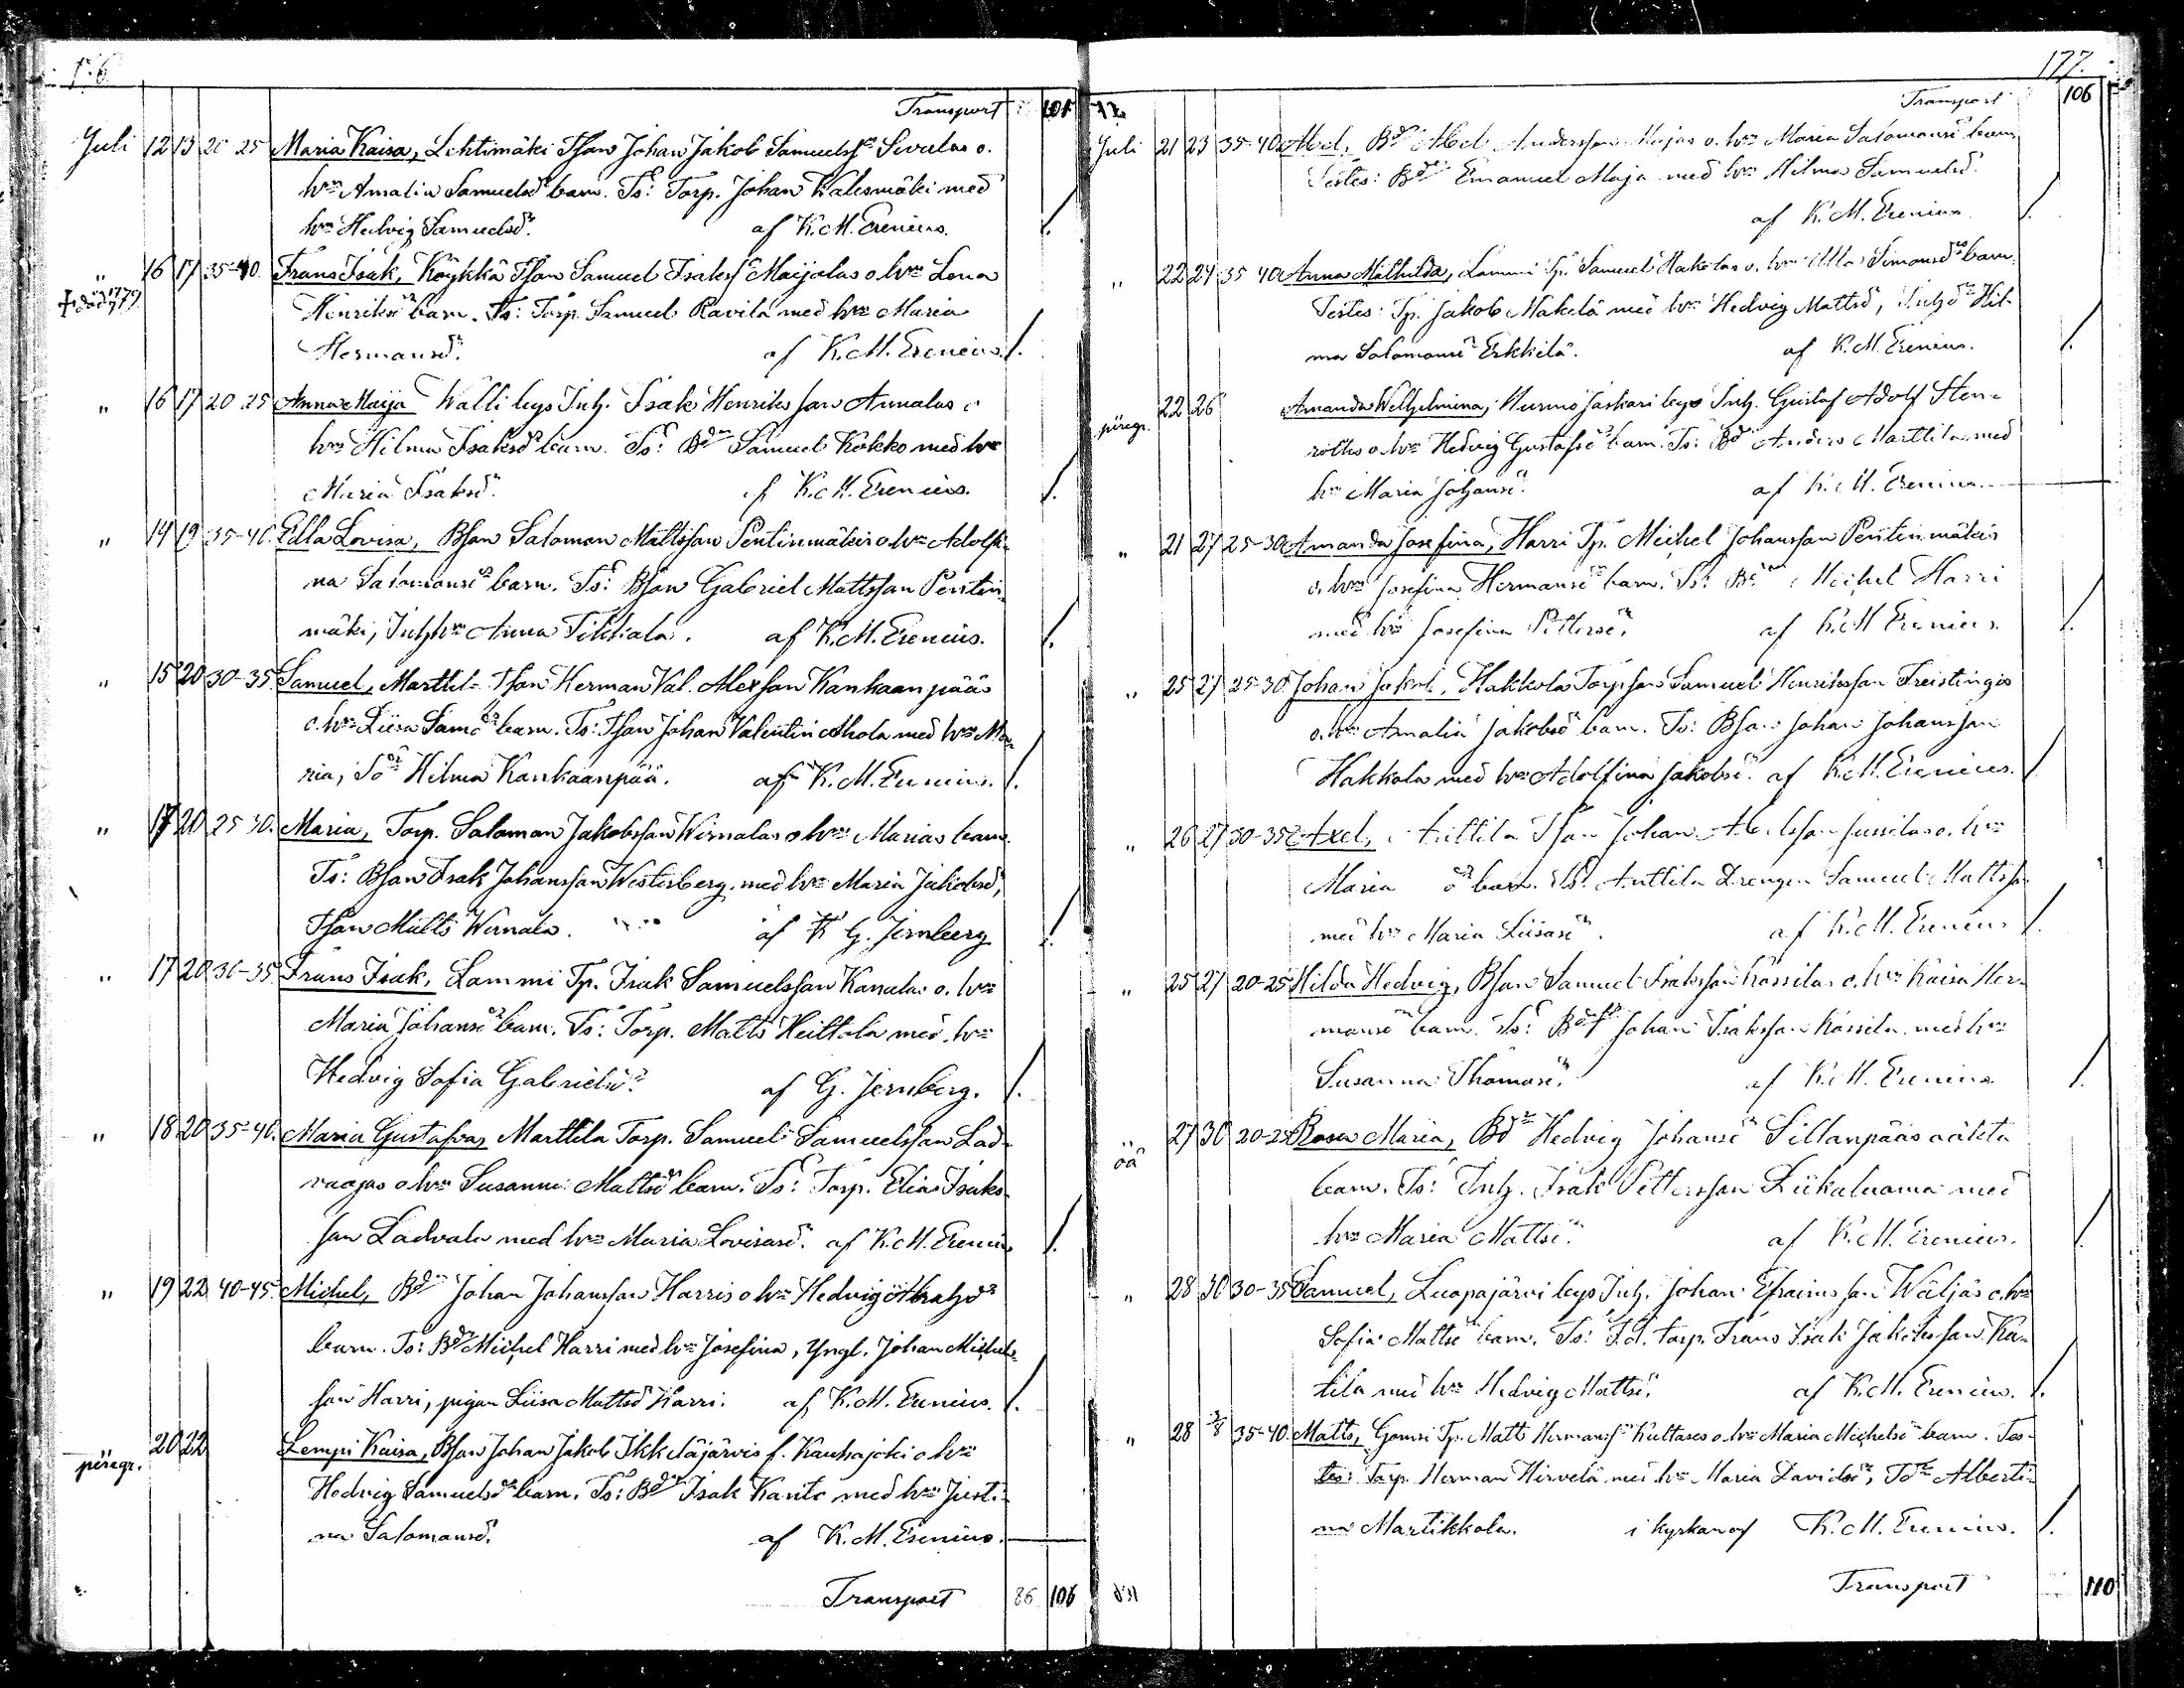 Transport 101
Juli 12 13 20-25 Maria Kaisa, Lehtimäki Tson Johan Jakob Samuelss. Sivulas o.
hn Amalia Samuelsd barn. Ts: Torp. Johan Kalesmäki med
hn Hedvig Samuelsd. af K.M. Erenius.
" 16 17 35-40. Frans Isak, Köykkä Tson Samuel Isakss. Maijalas o. hn Lena
† död
Henriksd barn. Ts: Torp. Samuel Ravila med hn Maria
Hermansd. af K.M. Erenius.
" 16 17 20-25 Anna Maija Walli legs Inh. Isak Henriksson Annalas o
hn Hilma Isaksd barn. Ts: Bdn Samuel Kokko med hn
Maria Isaksd. af K.M. Erenius.
" 14 19 35-40. Edla Lovisa, Bson Salomon Mattsson Pentinmäkis o. hn Adolfi-
na Salomonsd barn. Ts: Bson Gabriel Mattsson Pentin-
mäki, Inhhn Anna Tikkala. af K.M. Erenius.
" 15 20 30-35. Samuel, Marttil- Tson Herman Val. Alexson Kankaanpääs
o. hn Liisa Samd barn. Ts: Tson Johan Valentin Ahola med hn Ma-
ria, Td Hilma Kankaanpää. af K.M. Erenius.
" 17 20 25-30. Maria, Torp. Salomon Jakobsson Wirnalas o hn Marias barn.
Ts: Bson Isak Johansson Westerberg med hn Maria Jakobsd,
Tson Matts Wirnala. af G. Jernberg
" 17 20 30-35. Frans Isak, Lammi Tp. Isak Samuelsson Kanalas o. hn
Maria Johansd barn. Ts: Torp. Matts Heittola med hn
Hedvig Sofia Gabrielsd. af G. Jernberg.
" 18 20 35-40. Maria Gustafva, Marttila Torp. Samuel Samuelsson Lad-
vaajas o hn Susanna Mattsd barn. Ts: Torp. Elias Isaks-
son Ladvala med hn Maria Lovisasd. af K.M. Erenius
" 19 22 40-45. Michel, Bdn Johan Johansson Harris o hn Hedvig
barn. Ts: Bdn Michel Harri med hn Josefina, Yngl. Johan Michels-
son Harri, pigan Liisa Mattsd Harri. af K.M. Erenius.
" 20 22 Lempi Kaisa, Bson Johan Jakob Ikkeläjärvis f. Kauhajoki o. hn
peregr.
Hedvig Samuelsd barn. Ts: Bdn Isak Kanto med hn Justi-
na Salomonsd. af K.M. Erenius.
Transport 86 106
177.
Transport 106
Juli 21 23 35-40 Abel, Bdn Abel Andersson Majas o. hn Maria Salomonsd barn
Testes: Bdn Emanuel Maja med hn Hilma Samuelsd.
af K.M. Erenius
" 22 24 35-40 Anna Mathilda, Lammi Tp. Samuel Hakolas o. hn Ulla Simonsd barn.
Testes: Tp. Jakob Makelä med hn Hedvig Mattsd, Inhd Hil-
ma Salomonsd Erkkilä. af K.M. Erenius.
22 26 Amanda Wilhelmina, Hurmo Jaskari legs Inh. Gustaf Adolf Sten-
peregr.
roths o. hn Hedvig Gustafsd barn. Ts: Bd Anders Marttila med
hn Maria Johansd. af K.M. Erenius.
" 21 27 25-30 Amanda Josefina, Harri Tp. Michel Johansson Pentinmäkis
o. hn Josefina Hermansd barn. Ts: Bdn Michel Harri
med hn Josefina Pettersd. af K.M. Erenius.
" 25 27 25-30 Johan Jakob, Hakkola Torpson Samuel Henriksson Freistingis
o. hn Amalia Jakobsd barn. Ts: Bson Johan Johansson
Hakkola med hn Adolfina Jakobsd. af K.M. Erenius.
" 26 27 30-35 Axel, Anttila Tson Johan Jussilas o. hn
Maria barn. Ts: Anttila Drengen Samuel Mattsson
med hn Maria Liisasd. af K.M. Erenius
" 25 27 20-25 Hilda Hedvig, Bson Samuel Isaksson Kossilas o. hn Kaisa Her-
mansd barn. Ts: Bds Johan Isaksson Kossila med hn
Susanna Thomasd. af K.M. Erenius
" 27 30 20-25 Rosa Maria, Bd Hedvig Johansd Sillanpääs oäkta
oä
barn. Ts: Inh. Isak Pettersson Liikaluoma med
hn Maria Mattsd. af K.M. Erenius.
" 28 30 30-35 Samuel, Luopajärvi legs Inh. Johan Efraimsson Wäljäs o. hn
Sofia Mattsd barn. Ts: F.d. torp. Frans Isak Jakobsson Ka-
tila med hn Hedvig Mattsd. af K.M. Erenius.
" 28 2/8 35-40. Matts, Gumsi Tp. Matts Hermanss Kultases o. hn Maria Michelsd barn. Tes-
tes: Torp. Herman Hirvelä med hn Maria Davidsd, Td Alberti-
na Martikkola. i kyrkan af K.M. Erenius.
Transport 110